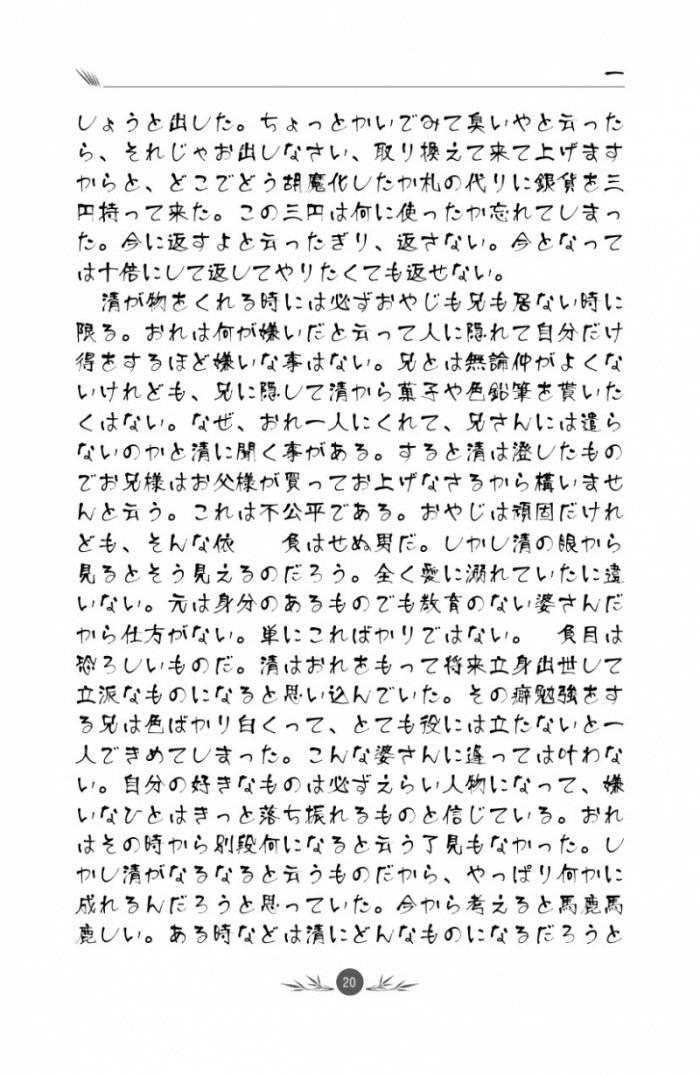 一
しょうと出した。ちょっとかいでみて臭いやと云った
ら、それじゃお出しなさい、取り換えて来て上げます
からと、どこでどう胡魔化したか札の代りに銀貨を三
円持って来た。この三円は何に使ったか忘れてしまっ
た。今に返すよと云ったぎり、返さない。今となって
は十倍にして返してやりたくても返せない。
清が物をくれる時には必ずおやじも兄も居ない時に
限る。おれは何が嫌いだと云って人に隠れて自分だけ
得をするほど嫌いな事はない。兄とは無論仲がよくな
いけれども、兄に隠して清から菓子や色鉛筆を貰いた
くはない。なぜ、おれ一人にくれて、兄さんには遣ら
ないのかと清に聞く事がある。すると清は澄したもの
でお兄様はお父様が買ってお上げなさるから構いませ
んと云う。これは不公平である。おやじは頑固だけれ
ども、そんな依　　負はせぬ男だ。しかし清の眼から
見るとそう見えるのだろう。全く愛に溺れていたに違
いない。元は身分のあるものでも教育のない婆さんだ
から仕方がない。単にこればかりではない。　負目は
恐ろしいものだ。清はおれをもって将来立身出世して
立派なものになると思い込んでいた。その癖勉強をす
る兄は色ばかり白くって、とても役には立たないと一
人できめてしまった。こんな婆さんに逢っては叶わな
い。自分の好きなものは必ずえらい人物になって、嫌
いなひとはきっと落ち振れるものと信じている。おれ
はその時から別段何になると云う了見もなかった。し
かし清がなるなると云うものだから、やっぱり何かに
成れるんだろうと思っていた。今から考えると馬鹿馬
鹿しい。ある時などは清にどんなものになるだろうと
20